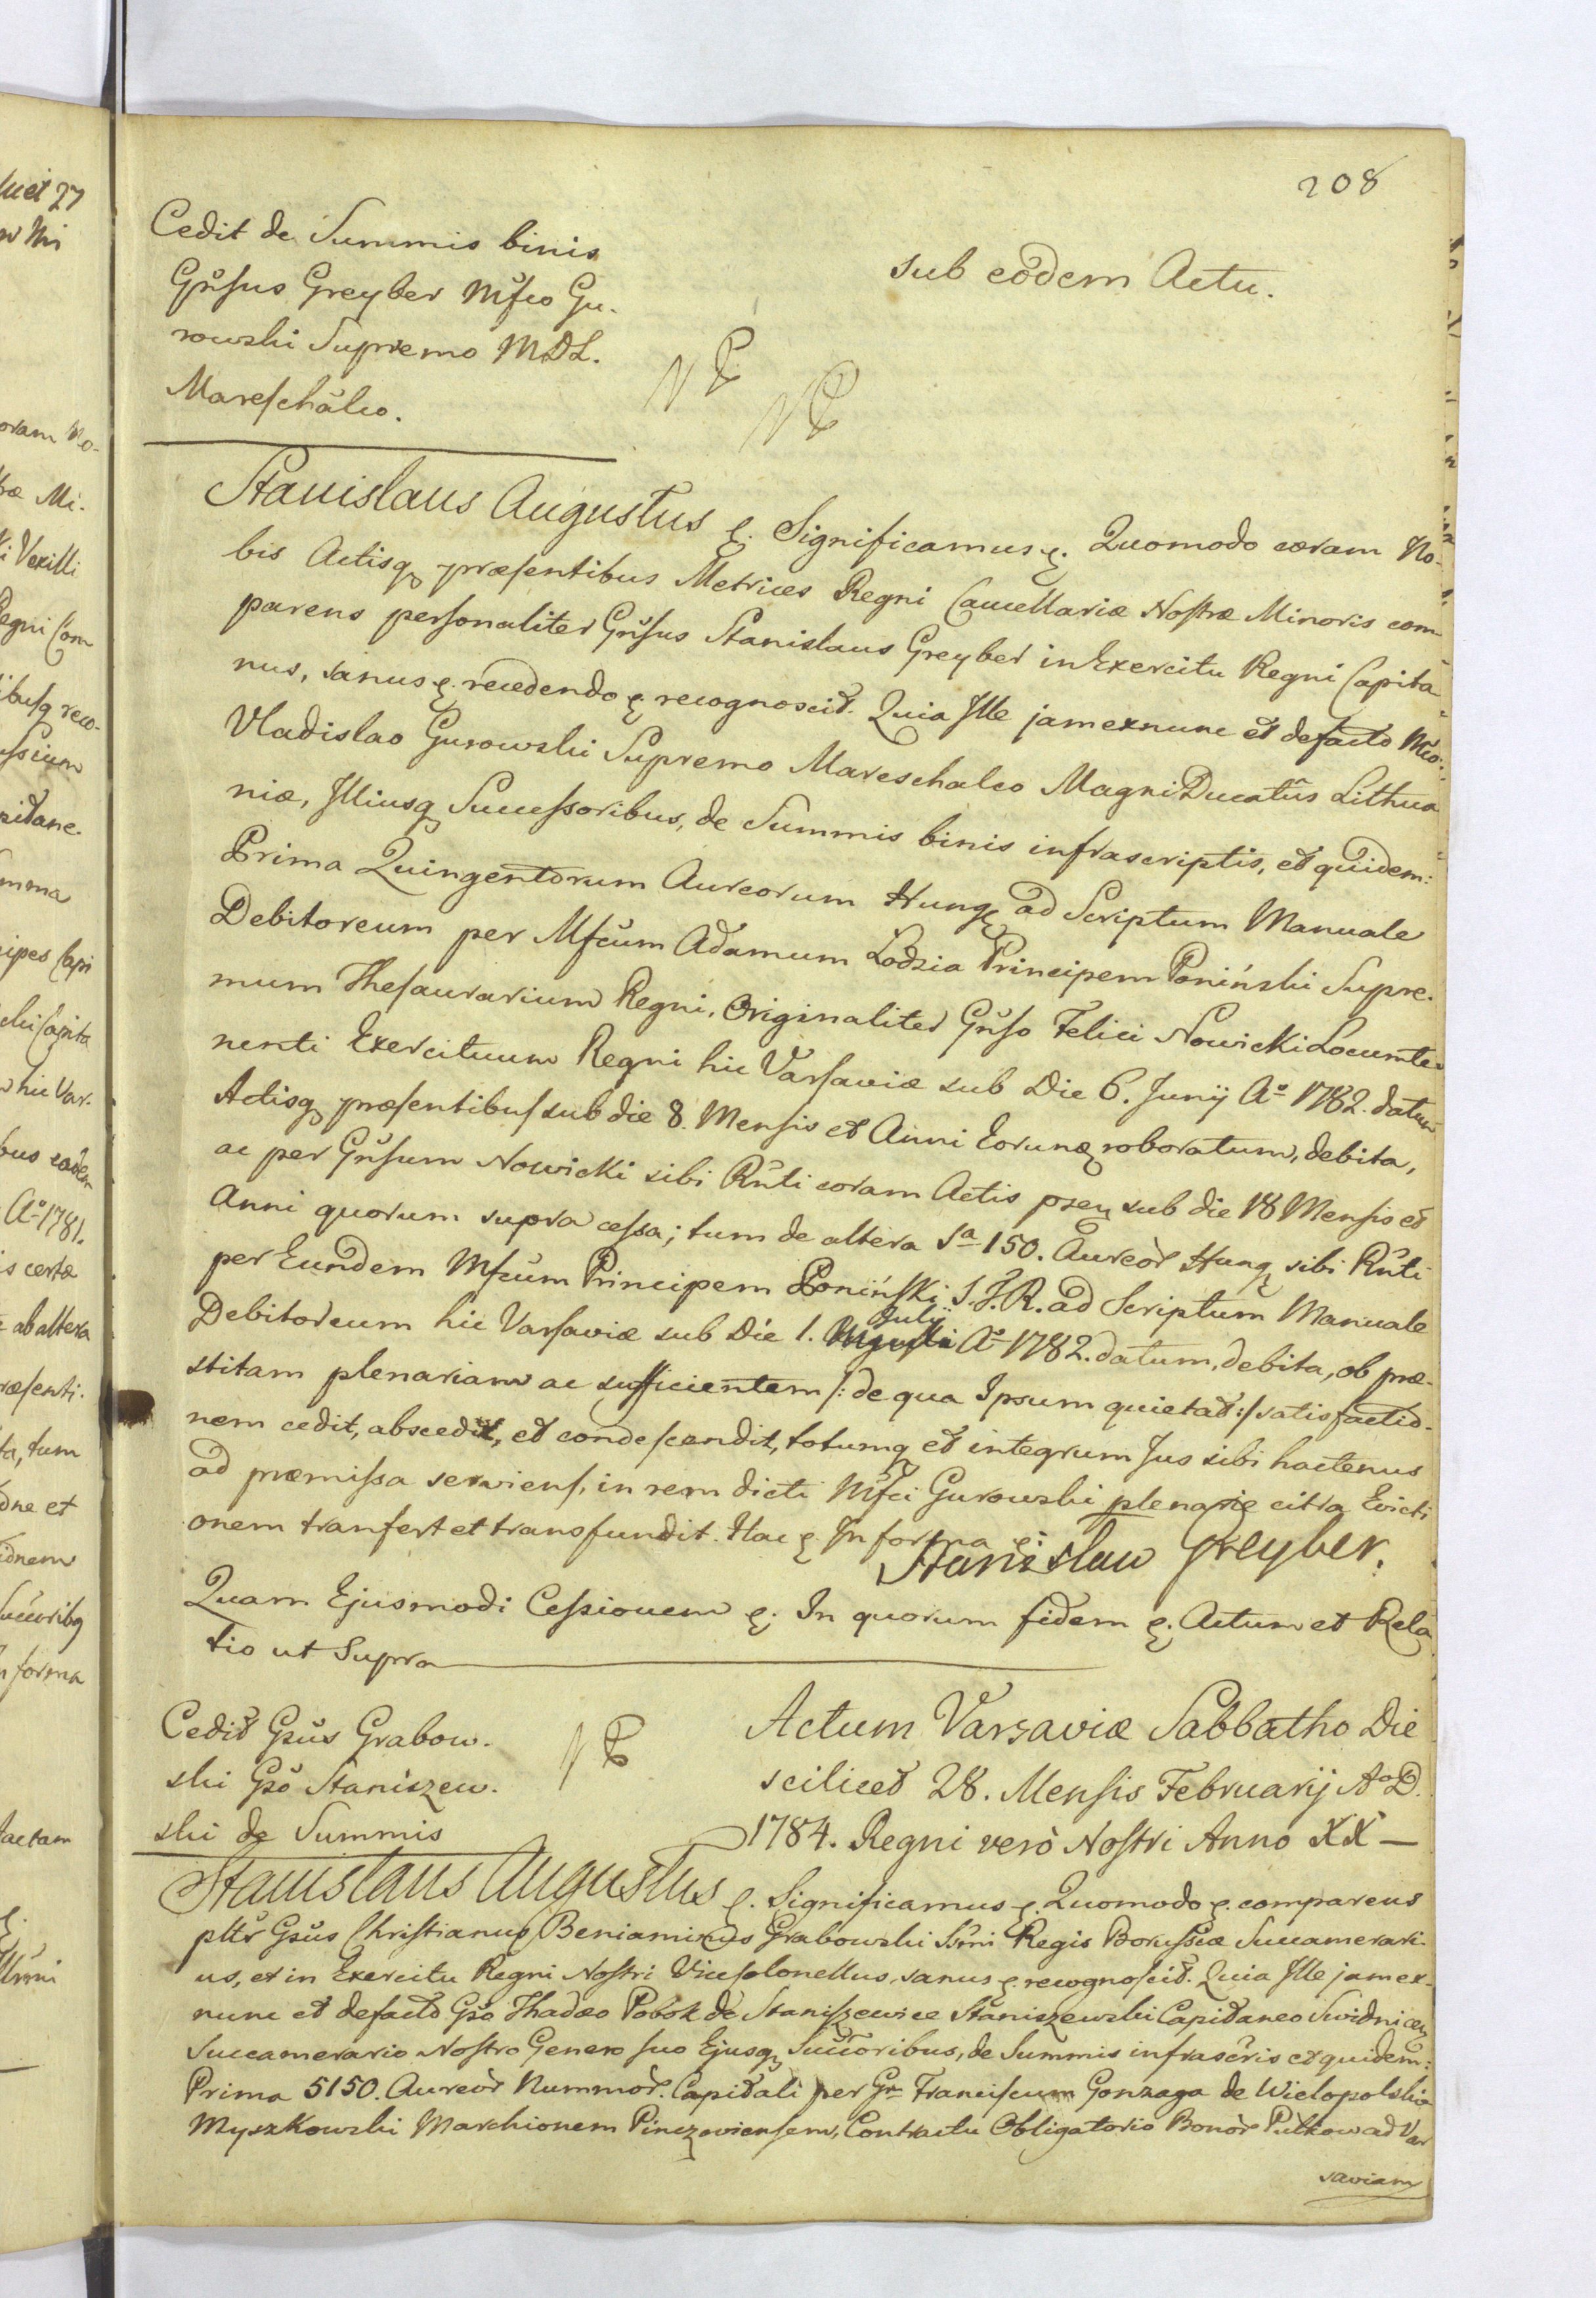 208
Cedit de Summis binis
Gnŭsus Greyber Mfco Gu-
rowski Supremo MDL.
Mareschălco.
sub eodem Actu.
Stanislaus Augustus ę. Significamus ę. Quomodo coram No-
bis Actisq̨ præsentibus Metrices Regni Cancellariæ Nostræ Minoris com-
parens personaliter Gnŭsus Stanislaus Greyber in Exercitu Regni Capita-
nus, sanus ę. recedendo ę recognoscit. Quia Ille jam exnunc et defacto Mco.
Vladislao Gurowski Supremo Mareschalco Magni Ducatûs Lithua-
niæ, Illiusq̨ Successoribus, de Summis binis infrascriptis, et quidem:
Prima Quingentorum Aureorum Hung̨ ad Scriptum Manuale
Debitoreum per Mfcum Adamum Lodzia Principem Poniński Supre-
mum Thesaurarium Regni, Originaliter Gnŭso Felici Nowicki Locumte-
nenti Exercituum Regni hic Varsaviæ sub Die 6. Junij Aº 1782. datum
Actisq̨ præsentibus sub die 8. Mensis et Anni Eorunq̨ roboratum, debita,
ac per Gnŭsum Nowicki sibi Rnti coram Actis psen̨ sub die 18 Mensis et
Anni quorum supra cessa; tum de altera Sª 150. Aureor Hung̨ sibi Rnti
per Eundem Mfcum Principem Poniński S.T.R. ad Scriptum Manuale
July
Debitoreum hic Varsaviæ sub Die 1. Aº 1782. datum, debita, ob præ-
stitam plenariam ac sufficientem /: de qua Ipsum quietat :/ satisfactio-
nem cedit, abscedit, et condescendit, totumq̨ et integrum Jus sibi hactenus
ad præmissa serviens, in rem dicti Mfci Gurowski plenarie citra Evicti-
onem tranfert et transfundit. Hac ę. In forma ę:
Stanisław Greyber.
Quam Ejusmodi Cessionem ę. In quorum fidem ę. Actum et Rela-
tio ut Supra
Cedit Gsŭs Grabow-
ski Gsŏ Staniszew-
ski de Summis
Actum Varsaviæ Sabbatho Die
scilicet 28. Mensis Februarij AºD.
1784. Regni verò Nostri Anno XX –
Stanislaus Augustus ę. Significamus ę. Quomodo ę. comparens
pltr Gsŭs Christianus Beniaminus Grabowski Ssmi Regis Borussiæ Succamerari-
us, et in Exercitu Regni Nostri Vicecolonellus, sanus ę. recognoscit. Quia Ille jam ex-
nunc et defacto Gso Thadæo Pobok de Staniszewice Staniszewski Capitaneo Swidnicen̨
Succamerario Nostro Genero suo Ejusq̨ Succoribus, de Summis infrascris et quidem:
Prima 5150. Aureor Nummor. Capitali per Gr Franciscum Gonzaga de Wielopolskie
Myszkowski Marchionem Pinczoviensem, Contractu Obligatorio Bonor Putkow ad Var-
saviam